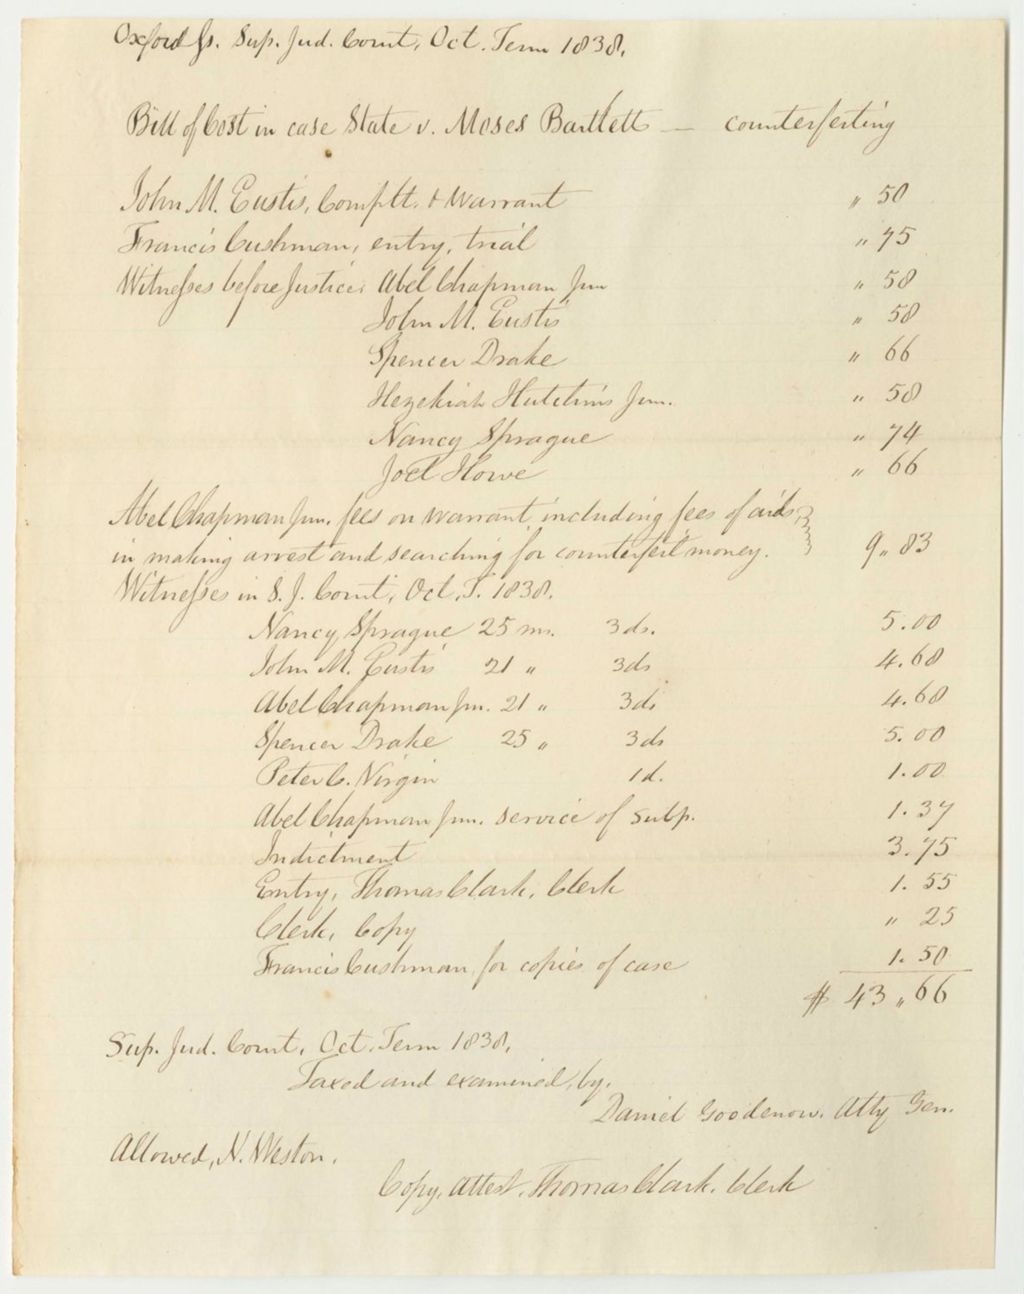 Oxford ss. Sup. Jud. Court, Oct. Term 1838.
Bill of Cost in case State v. Moses Bartlett — counterfeiting
John M. Eustis, Complt. & Warrant " 50
Francis Cushman, entry, trial " 75
Witnesses before Justice: Abel Chapman Jun " 58
John M. Eustis " 58
Spencer Drake " 66
Hezekiah Hutchins Jun. " 58
Nancy Sprague " 74
Joel Howe " 66
Abel Chapman Jun. fees on warrant including fees of aids,
in making arrest and searching for counterfeit money. 9" 83
Witnesses in S. J. Court, Oct. T. 1838.
Nancy Sprague 25 ms. 3 ds. 5.00
John M. Eustis 21 " 3 ds 4.68
Abel Chapman Jun. 21 " 3 ds 4.68
Spencer Drake 25 " 3 ds 5.00
Peter C. Virgin 1 d. 1.00
Abel Chapman Jun. service of Subp. 1.37
Indictment 3.75
Entry, Thomas Clark, Clerk 1.55
Clerk, Copy " 25
Francis Cushman for copies of case 1.50
$ 43 " 66
Sup. Jud. Court, Oct. Term 1838.
Taxed and examined, by,
Daniel Goodenow. Atty Gen.
Allowed, N. Weston.
Copy, Attest, Thomas Clark. Clerk